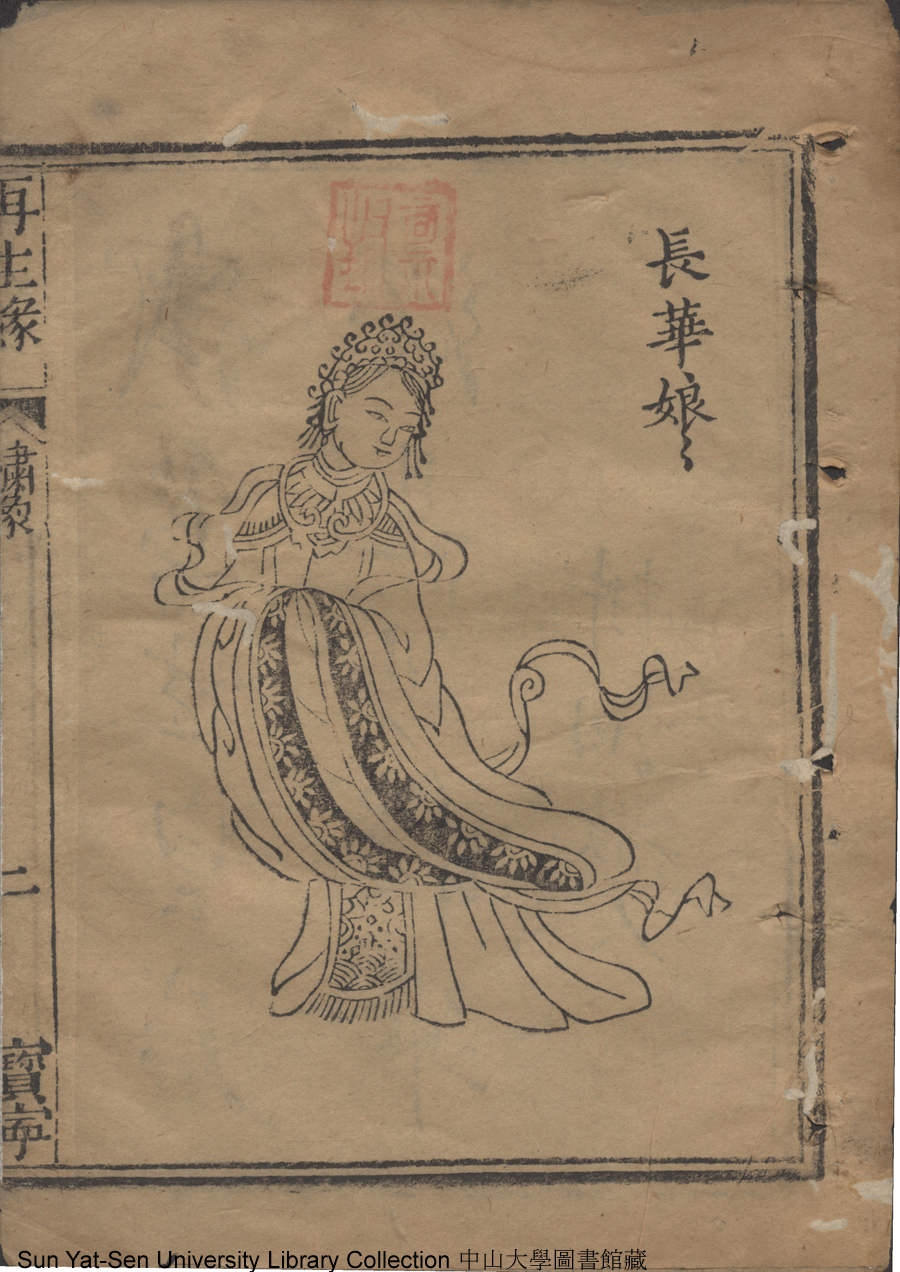 長華娘〻
再生緣
繡像
二
寶寧
Sun Yat-Sen University Library Collection 中山大學圖書館藏